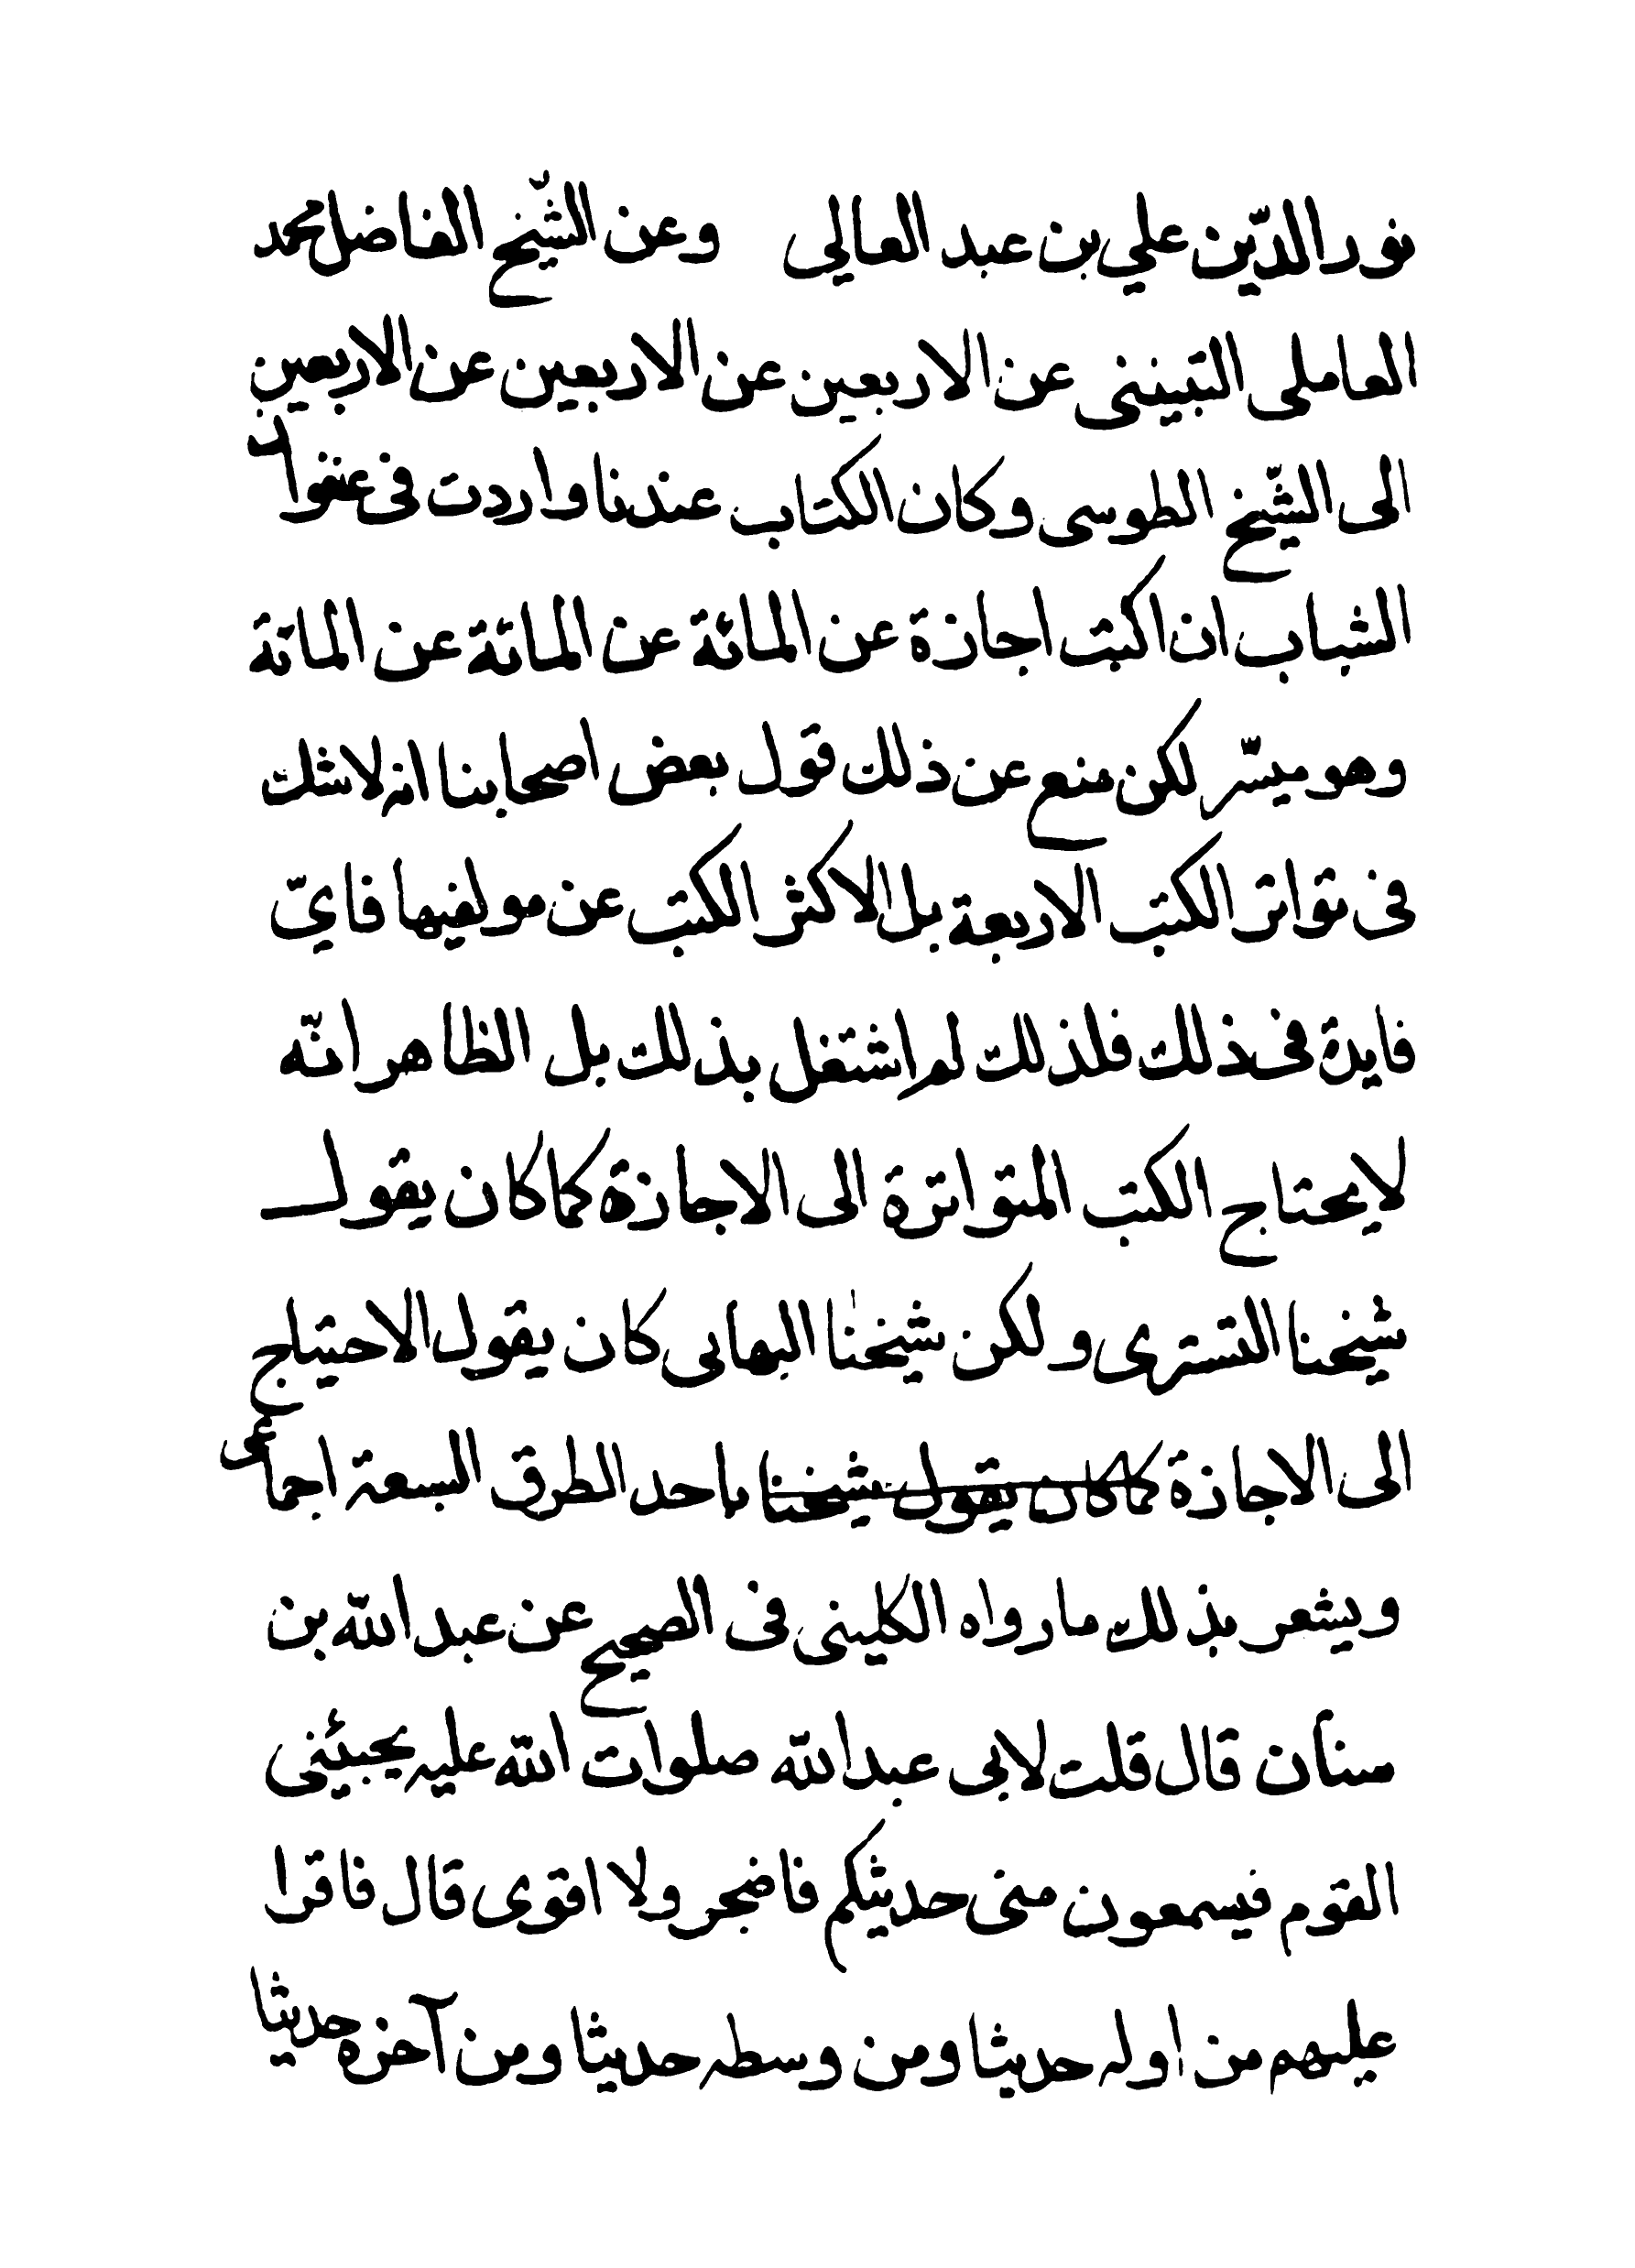 نور الدّين علي بن عبد العالي وعن الشّيخ الفاضل محمد
العاملى التبينى عن الاربعين عن الاربعين عن الاربعين
الى الشّيخ الطوسى وكان الكتاب عندنا واردت فى عنفوان
الشباب ان اكتب اجازة عن المائة عن المائة عن المائة
وهو ميسّر لكن منع عن ذلك قول بعض اصحابنا انه لا شك
فى تواتر الكتب الاربعة بل الاكثر الكتب عن مولفيها فايّ
فايدة فى ذلك فلذلك لم اشتغل بذلك بل الظاهر انّه
لا يحتاج الكتب المتواترة الى الاجازة كما كان يقول
شيخنا التسترى ولكن شيخنا البهايى كان يقول الاحتياج
الى الاجازة كما كان يقول شيخنا باحد الطرق السبعة اجماعى
ويشعر بذلك ما رواه الكلينى فى الصحيح عن عبد اللّه بن
سنان قال قلت لابى عبد اللّه صلوات اللّه عليه يجيئنى
القوم فيسمعون منى حديثكم فاضجر ولا اقوى قال فاقرا
عليهم من اوله حديثا ومن وسطه حديثا ومن آخره حديثا